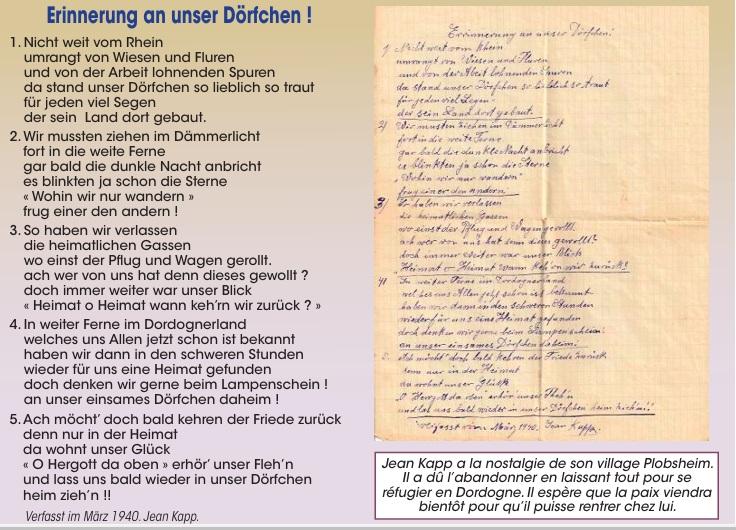 Erinnerung an unser Dörfchen !
1. Nicht weit vom Rhein
umrangt von Wiesen und Fluren
und von der Arbeit lohnenden Spuren
da stand unser Dörfchen so lieblich so traut
für jeden viel Segen
der sein Land dort gebaut.
2. Wir mussten ziehen im Dämmerlicht
fort in die weite Ferne
gar bald die dunkle Nacht anbricht
es blinkten ja schon die Sterne
« Wohin wir nur wandern »
frug einer den andern !
3. So haben wir verlassen
die heimatlichen Gassen
wo einst der Pflug und Wagen gerollt.
ach wer von uns hat denn dieses gewollt ?
doch immer weiter war unser Blick
« Heimat o Heimat wann keh’rn wir zurück ? »
4. In weiter Ferne im Dordognerland
welches uns Allen jetzt schon ist bekannt
haben wir dann in den schweren Stunden
wieder für uns eine Heimat gefunden
doch denken wir gerne beim Lampenschein !
an unser einsames Dörfchen daheim !
5. Ach möcht’ doch bald kehren der Friede zurück
denn nur in der Heimat
da wohnt unser Glück
« O Hergott da oben » erhör’ unser Fleh’n
und lass uns bald wieder in unser Dörfchen
heim zieh’n !!
Verfasst im März 1940. Jean Kapp.
Errinnerung an unser Dörfchen!
1) Nicht weit vom Rhein
umrangt von Wiesen und Fluren
und von der Arbeit lohnenden Spuren
da stand unser Dörfchen so lieblich so traut
für jeden viel Segen
der sein Land dort gebaut.
2) Wir musten ziehen im Dämmerlicht
fort in die weite Ferne
gar bald die dunkle Nacht anbricht
es blinkten ja schon die Sterne
„Wohin wir nur wandern"
frug einer den andern
3) So haben wir verlassen
die heimatlichen Gassen
wo einst der Pflug und Wagen gerollt.
ach wer von uns hat denn dieses gewollt?
doch immer weiter war unser Blick
„Heimat o Heimat wann keh'rn wir zurück!
4) In weiter Ferne im Dordognerland
welches uns Allen jetzt schon ist bekannt
haben wir dann in den schweren Stunden
wieder für uns eine Heimat gefunden
doch denken wir gerne beim Lampenschein!
an unser einsames Dörfchen daheim!
5. Ach möcht' doch bald kehren der Friede zurück
denn nur in der Heimat
da wohnt unser Glück
O Hergott da oben erhör unser Fleh'n
und las uns bald wieder in unser Dörfchen heim zieh'n!!
Verfasst im März 1940. Jean Kapp.
Jean Kapp a la nostalgie de son village Plobsheim.
Il a dû l’abandonner en laissant tout pour se
réfugier en Dordogne. Il espère que la paix viendra
bientôt pour qu’il puisse rentrer chez lui.